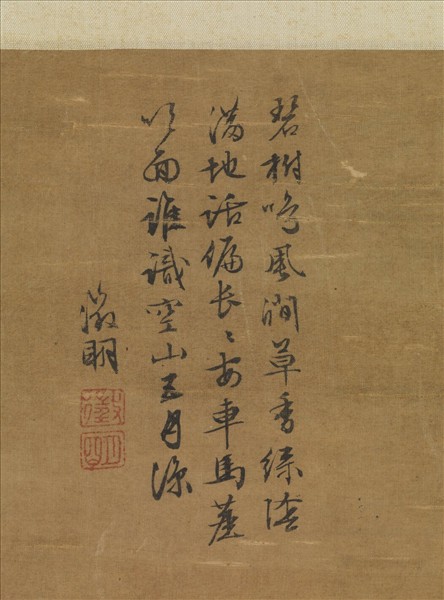 碧樹鳴風澗草香綠陰
滿地話偏長〻安車馬塵
吹面誰識空山五月涼
徵明
徵明